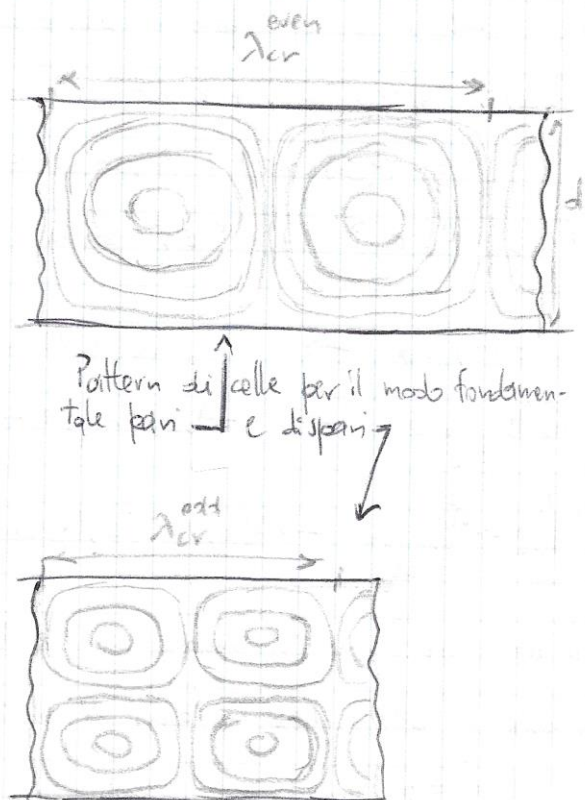 λcr^even
d
Pattern di celle per il modo fondamen-
tale pari e dispari
λcr^odd